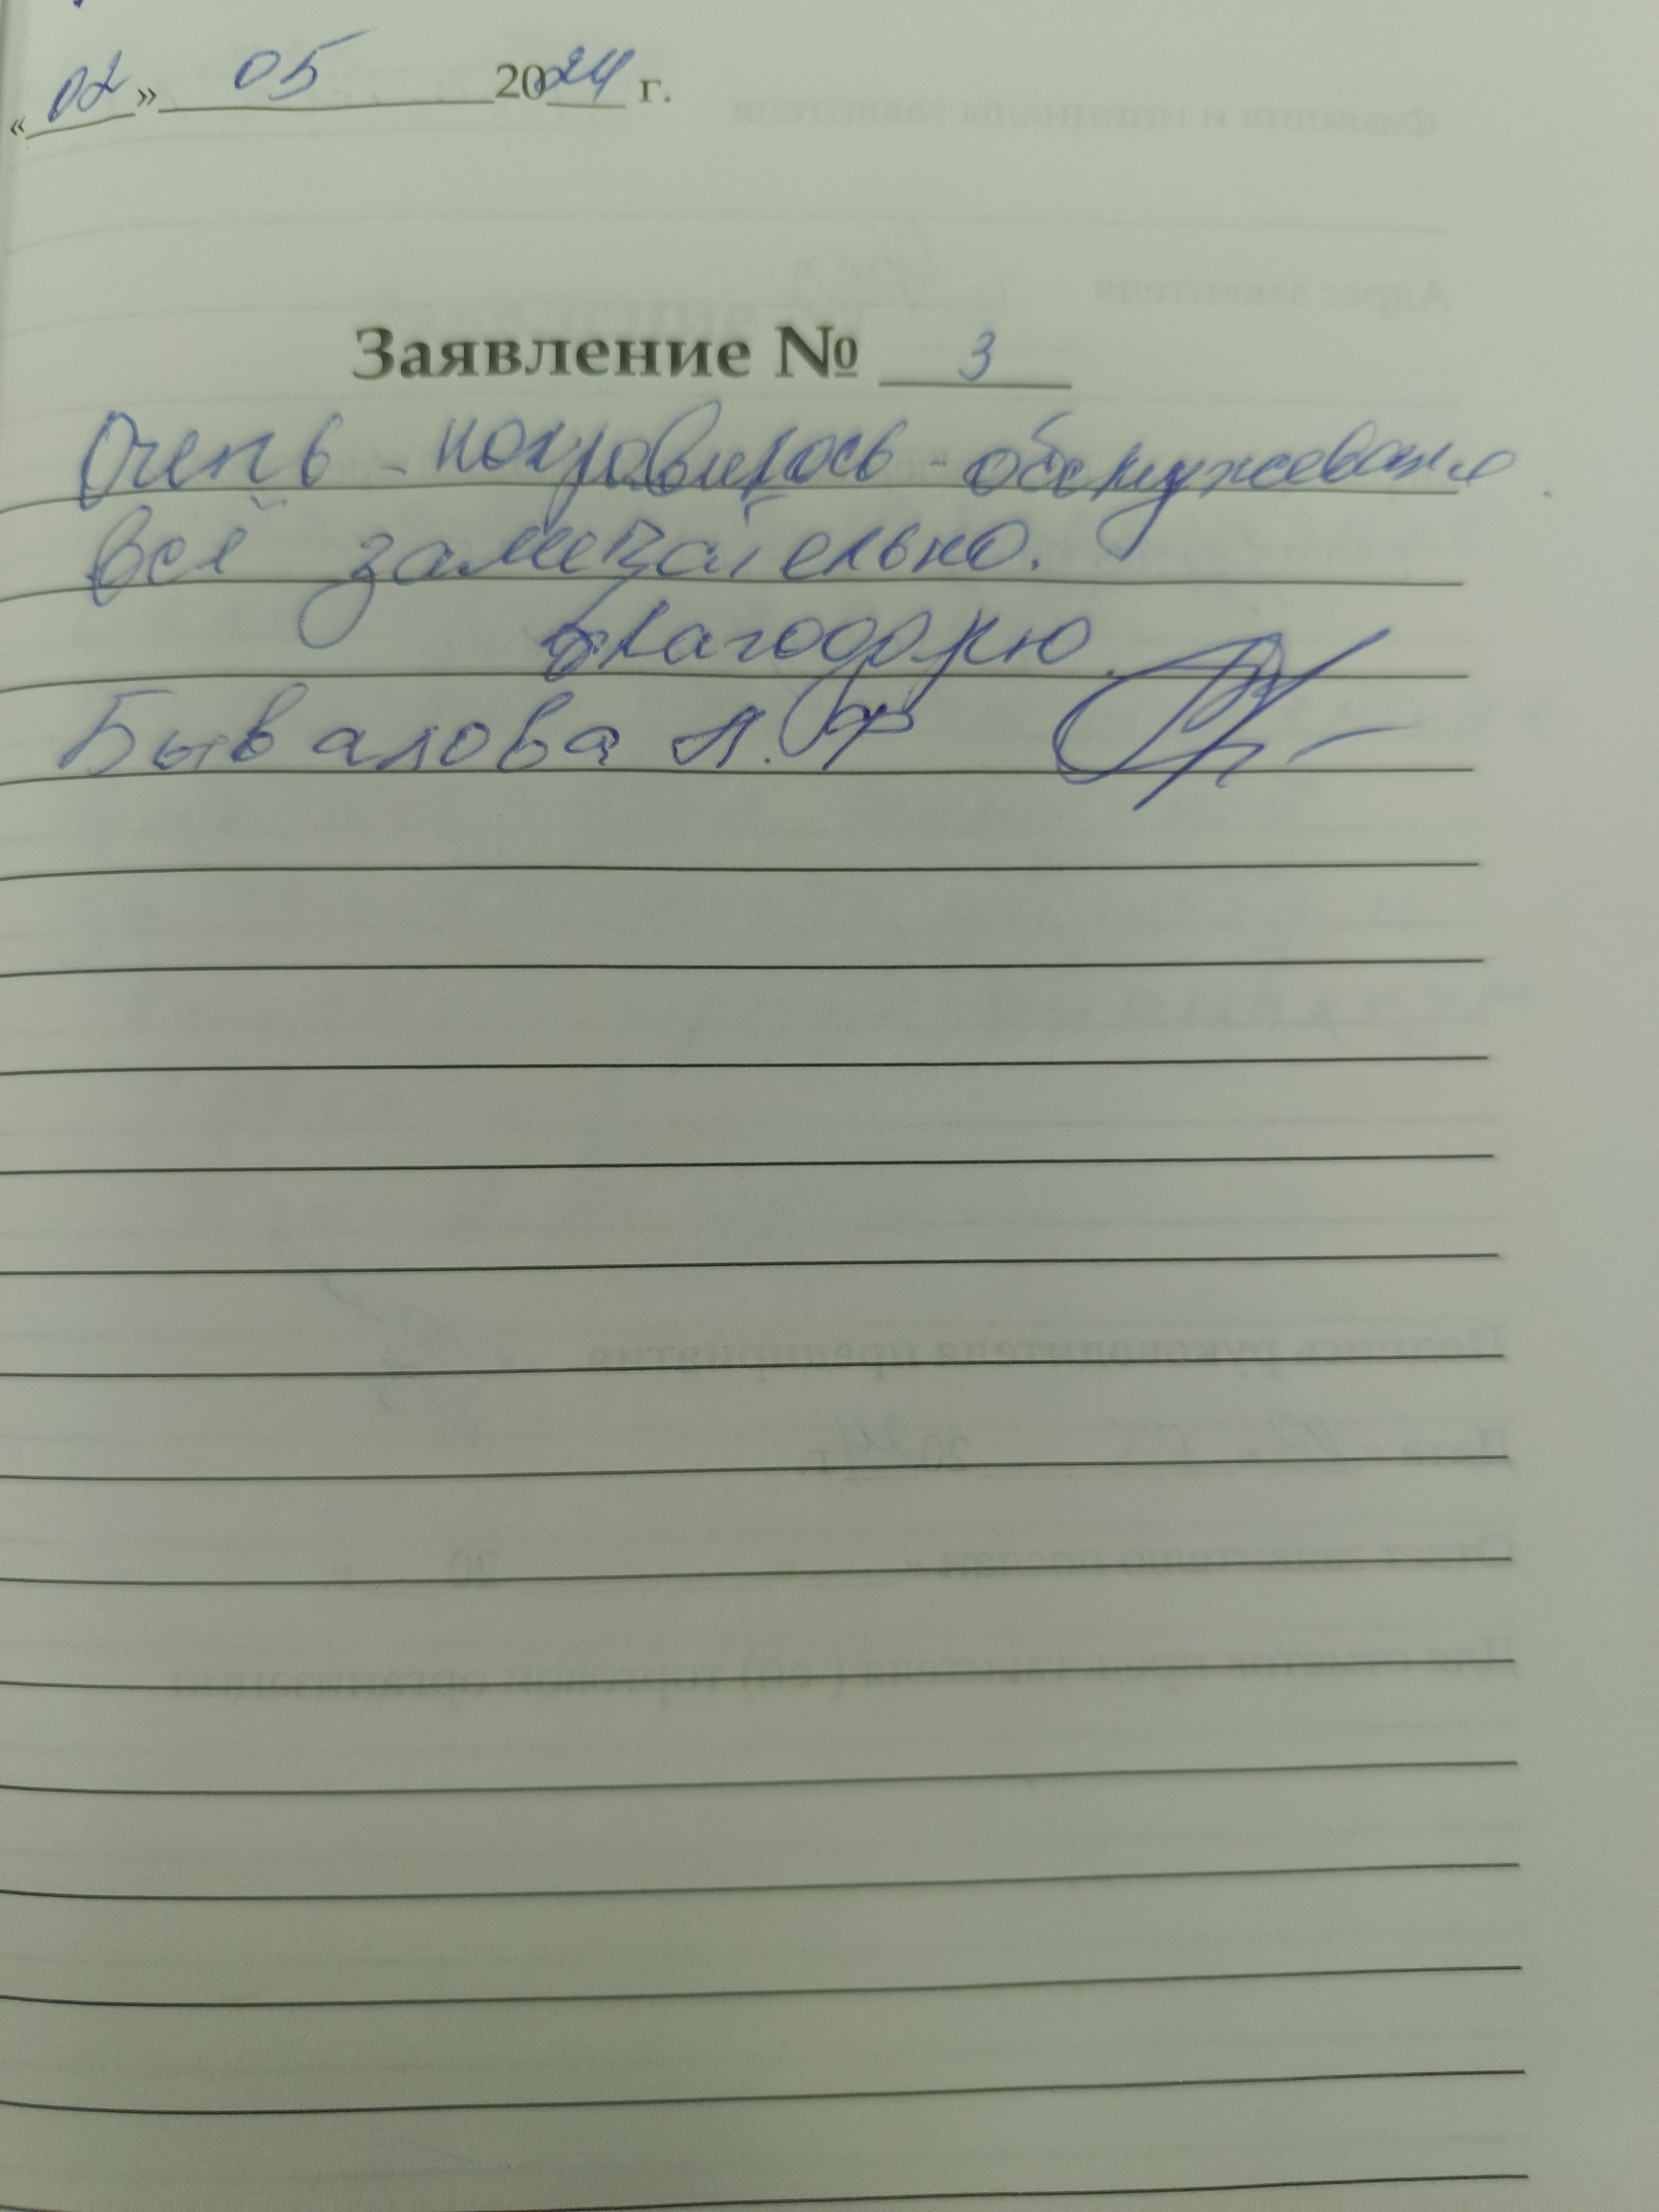 «02» 05 2024 г.
Заявление № 3
Очень - понравилось - обслуживание.
Всё замечательно.
благодарю.
Бывалова Л.Ф